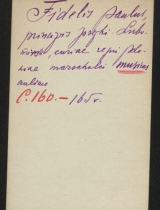 Fidelis Paulus,
principis Joszki Lubo-
curiae regni Polo-
niae marschalci musicus
aulicus
C. 160. — 165r.